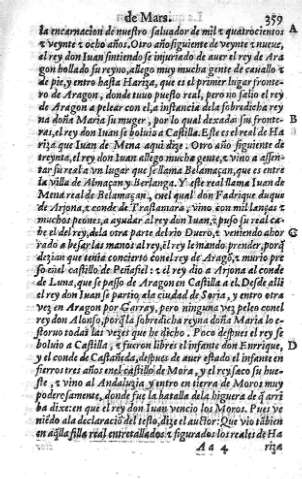 de Mars. 359
la encarnacion de nuestro saluador de mil & quatrocientos A
& veynte & ocho años. Otro año siguiente de veynte & nueue,
el rey don Iuan sintiendo se injuriado de auer el rey de Ara
gon hollado su reyno, allego muy mucha gente de cauallo &
de pie, y entro hasta Hariza, que es el primer lugar fronte-
ro de Aragon, donde tuuo puesto real, pero no salio el rey
de Aragon a pelear con el, a instancia dela sobredicha rey
na doña Maria su muger, por lo qual dexadas sus fronte- B
ras, el rey don Iuan se boluio a Castilla. Este es el real de Ha
riza que Iuan de Mena aqui dize. Otro año siguiente de
treynta, el rey don Iuan allego mucha gente, & vino a assen-
tar su real a vn lugar que se llama Belamaçan, que es entre
la villa de Almaçan y Berlanga. Y este real llama Iuan de
Mena real de Belamaçan, enel qual don Fadrique duque
de Arjona, & conde de Trastamara, vino con mil lanças &
muchos peones, a ayudar al rey don Iuan, & puso su real ca-
be el del rey, dela otra parte del rio Duero, & veniendo ahor
rado a besar las manos al rey, el rey le mando prender, porq̃ C
dezian que tenia concierto conel rey de Aragõ, & murio pre
so enel castillo de Peñafiel: & el rey dio a Arjona al conde
de Luna, que se passo de Aragon en Castilla a el. Desde alli
el rey don Iuan se partio ala ciudad de Soria, y entro otra
vez en Aragon por Garray, pero ninguna vez peleo conel
rey don Alonso, porq̃ la sobredicha reyna doña Maria lo e-
storuo todas las vezes que he dicho. Poco despues el rey se
boluio a Castilla, & fueron libres el infante don Enrrique, D
y el conde de Castañeda, despues de auer estado el infante en
fierros tres años enel castillo de Mora, y el rey saco su hue-
ste, & vino al Andaluzia, y entro en tierra de Moros muy
poderosamente, donde fue la batalla dela higuera de q̃ arri
ba dixe: en que el rey don Iuan vencio los Moros. Pues ve
niẽdo ala declaraciõ del testo, dize el auctor: Que vio tãbien
en aq̃lla silla real entretallados & figurados los reales de Ha
A a 4 riza